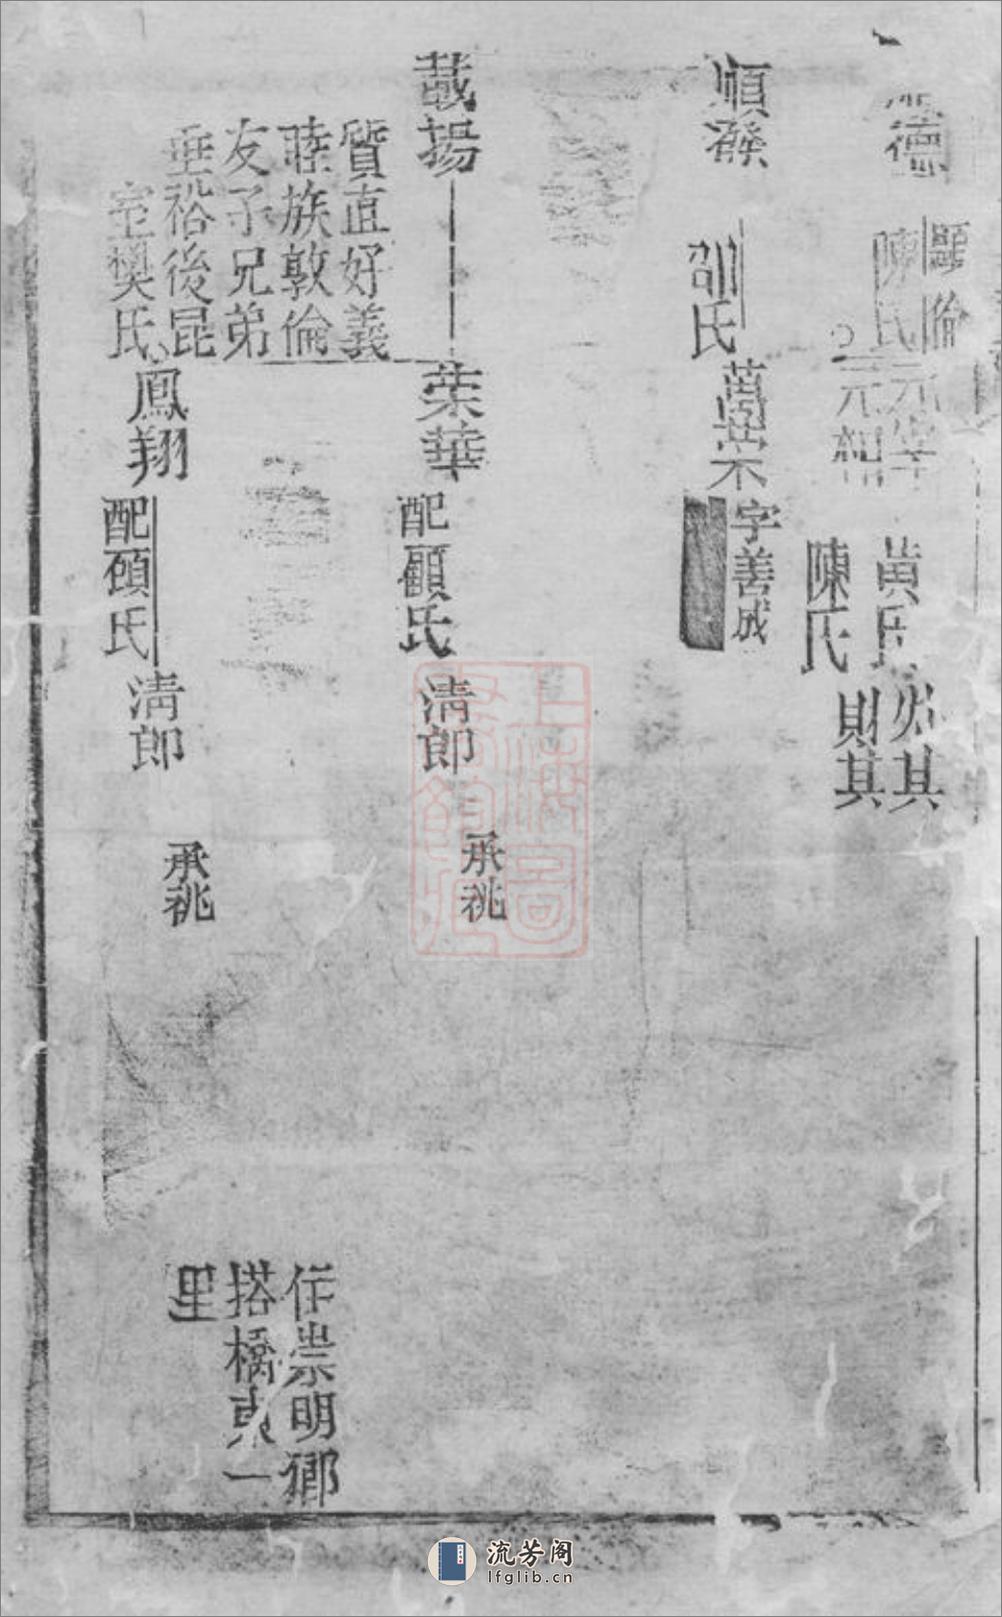 德
顯倫
陳氏
元華
元相
黃氏
陳氏
必其
財其
順發
邵氏
萬崇
字善成
載揚
榮華
配顧氏
清郎
承祧
質直好義
睦族敦倫
友于兄弟
垂裕後昆
室樊氏
鳳翔
配顧氏
清郎
承祧
住崇明鄉
搭橋東一
里
上海圖書館藏
流芳阁
lfglib.cn